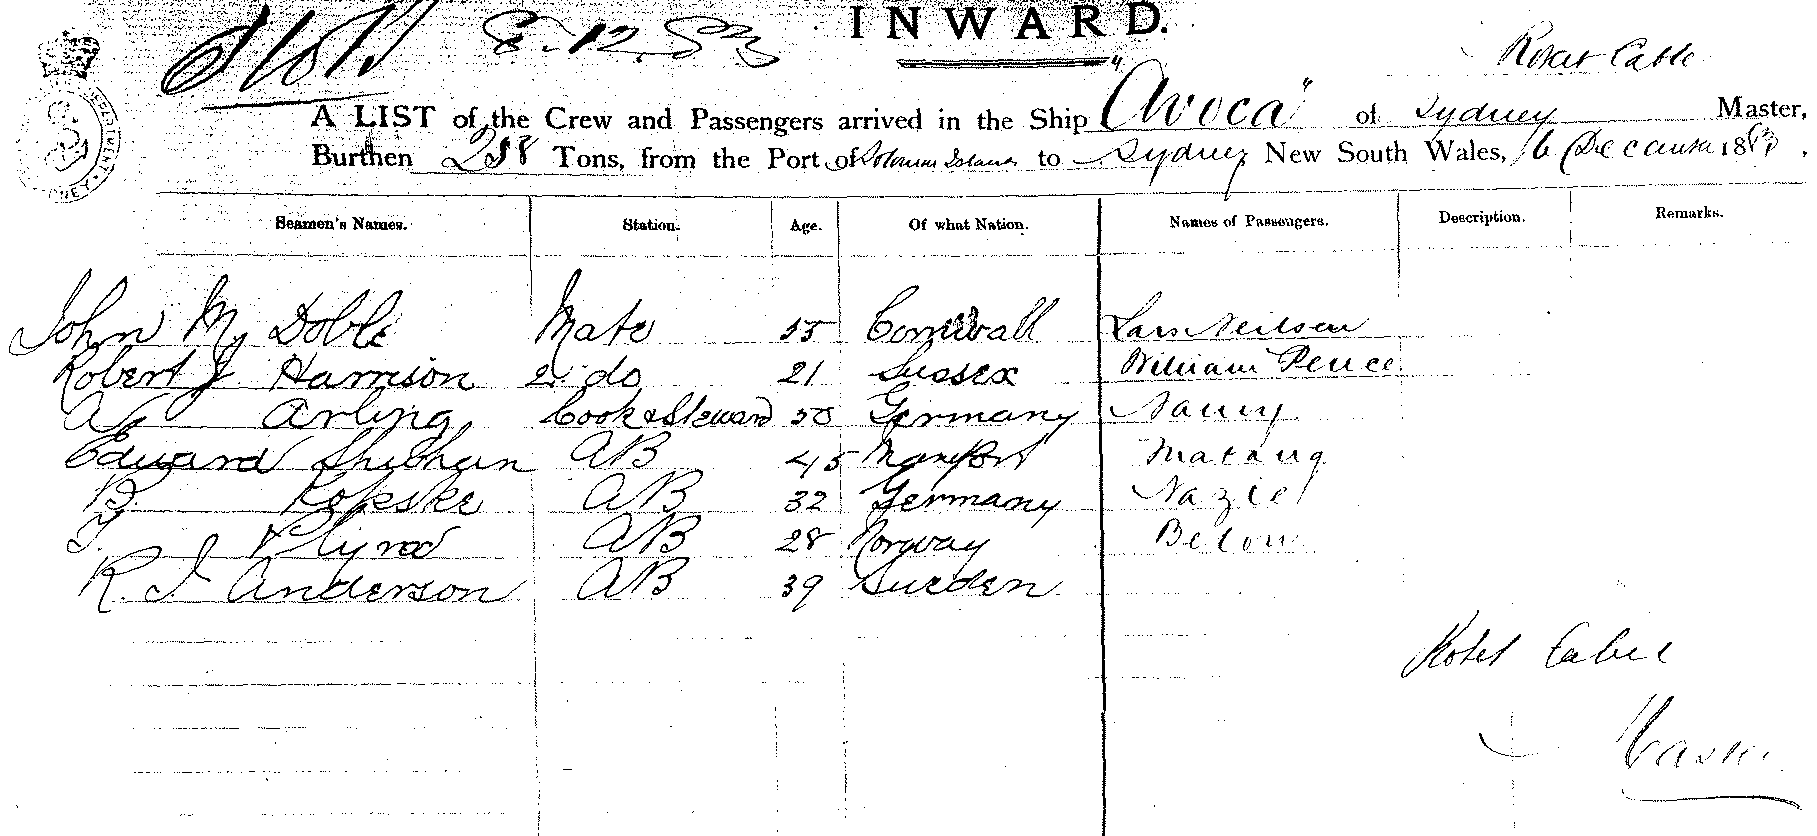 INWARD.
8.12.83
Robert Cable
A LIST of the Crew and Passengers arrived in the Ship "Avoca" of Sydney Master,
Burthen 258 Tons, from the Port of Solomon Islands to Sydney New South Wales, 6 December 1883.
Seamen's Names. Station. Age. Of what Nation. Names of Passengers. Description. Remarks.
John M. Doble Mate 55 Cornwall Lars Neilsen
Robert J Harrison 2 do 21 Sussex William Peuce
A Arling Cook & Steward 50 Germany Nancy
Edward Shehan AB 45 Matang
B. Kopske AB 32 Germany Naziel
T. AB 28 Norway Belou
R. J Anderson AB 39 Sweden
Robt Cable
Master